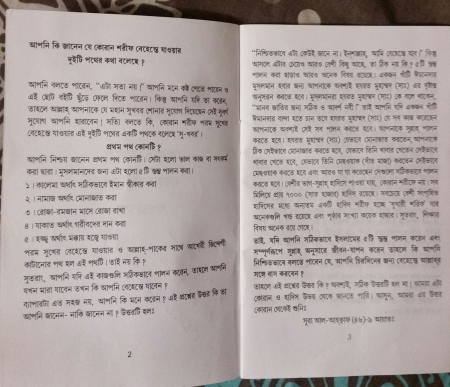 আপনি কি জানেন যে কোরান শরীফ বেহেস্তে যাওয়ার
দুইটি পথের কথা বলেছে ?
আপনি বলতে পারেন, “এটা সত্য নয়।” আপনি মনে কষ্ট পেতে পারেন ও
এই ছোট বইটি ছুঁড়ে ফেলে দিতে পারেন। কিন্তু আপনি যদি তা করেন,
তাহলে আল্লাহ্ আপনাকে যে মহান সুখবর শোনার সুযোগ দিয়েছেন সেই সুবর্ণ
সুযোগ আপনি হারাবেন। সত্যি বলতে কি, কোরান শরীফ পরম সুখের
বেহেস্তে যাওয়ার এই দুইটি পথের একটি পথকে বলেছে ‘সু-খবর’।
প্রথম পথ কোনটি ?
আপনি নিশ্চয় জানেন প্রথম পথ কোনটি। সেটা হলো ভাল কাজ বা সৎকর্ম
করা দ্বারা। মুসলমানদের জন্য এটা হলো ৫টি স্তম্ভ পালন করা।
১। কালেমা অর্থাৎ সঠিকভাবে ইমান স্বীকার করা
২। নামাজ অর্থাৎ মোনাজাত করা
৩। রোজা-রমজান মাসে রোজা রাখা
৪। যাকাত অর্থাৎ গরীবদের দান করা
৫। হজ্ব অর্থাৎ মক্কায় হজ্বে যাওয়া
পরম সুখের বেহেস্তে যাওয়ার ও আল্লাহ্-পাকের সাথে আখেরী জিন্দেগী
কাটানোর পথ হল এই পথটি। তাই নয় কি ?
সুতরাং, আপনি যদি এই কাজগুলি সঠিকভাবে পালন করেন, তাহলে আপনি
যখন মারা যাবেন তখন কি আপনি বেহেস্তে যাবেন ?
ব্যাপারটা এত সহজ নয়, আপনি কি মনে করেন ? এই প্রশ্নের উত্তর কি তা
আপনি জানেন- নাকি জানেন না ? উত্তরটি হলঃ
2
“নিশ্চিতভাবে এটা কেউই জানে না। ইনশাল্লাহ্, আমি বেহেস্তে যাব।” কিন্তু
আসলে এটার চেয়েও আরও বেশী কিছু আছে, তা ঠিক নয় কি ? ৫টি স্তম্ভ
পালন করা ছাড়াও আরও অনেক বিষয় রয়েছে। একজন খাঁটি ঈমানদার
মুসলমান হবার জন্য আপনাকে অবশ্যই হযরত মুহাম্মদ (সাঃ) এর দৃষ্টান্ত
অনুসরণ করতে হবে। মুসলমানরা হযরত মুহাম্মদ (সাঃ) কে বলে থাকেন,
“মানব জাতির জন্য সঠিক ও আদর্শ নবী।” তাই আপনি যদি একজন খাঁটি
ঈমানদার বান্দা হতে চান তবে হযরত মুহাম্মদ (সাঃ) যে সব কাজ করেছেন
আপনাকে অবশ্যই সেই সব পালন করতে হবে। আপনাকে সুন্নাহ্ পালন
করতে হবে। হযরত মুহাম্মদ (সাঃ) যেভাবে মোনাজাত করতেন আপনাকে
ঠিক সেইভাবে মোনাজাত করতে হবে, যেভাবে তিনি খাবার খেতেন সেইভাবে
খাবার খেতে হবে, যেভাবে তিনি মেছওয়াক (দাঁত মাজা) করতেন সেইভাবে
মেছওয়াক করতে হবে এবং আরও যা যা করেছেন সেগুলো সঠিকভাবে পালন
করতে হবে। বেশীর ভাগ-সুন্নাহ্ হাদিসে পাওয়া যায়, কোরান শরীফে নয়। সব
মিলিয়ে প্রায় ৭০০০ (সাত হাজার) হাদিস রয়েছে। সবচেয়ে বেশী সম্পর্কিত
হাদিসের মধ্যে অন্যতম একটি হাদিস শরীফ হচ্ছে ‘বুখারী শরীফ’ যার
অনেকগুলি খন্ড রয়েছে এবং পৃষ্ঠার সংখ্যা কয়েক হাজার। সুতরাং, শিক্ষার
বিষয় অনেক রয়ে গেছে।
তাই, যদি আপনি সঠিকভাবে ইসলামের ৫টি স্তম্ভ পালন করেন এবং
সম্পূর্ণরূপে সুন্নাহ্ অনুসারে জীবন-যাপন করেন তাহলে কি আপনি
নিশ্চিতভাবে বলতে পারেন যে, আপনি চিরদিনের জন্য বেহেস্তে আল্লাহ্‌র
সঙ্গে বাস করবেন ?
তাহলে এই প্রশ্নের উত্তর কি ? অবশ্যই, সঠিক উত্তরটি হল না। আমরা এটা
কোরান ও হাদিস উভয় থেকে জানতে পারি। আসুন, আমরা এর উত্তর
কোরান থেকেই শুনিঃ
সূরা আল-আহ্‌কাফ (৪৬)-৯ আয়াতঃ
3